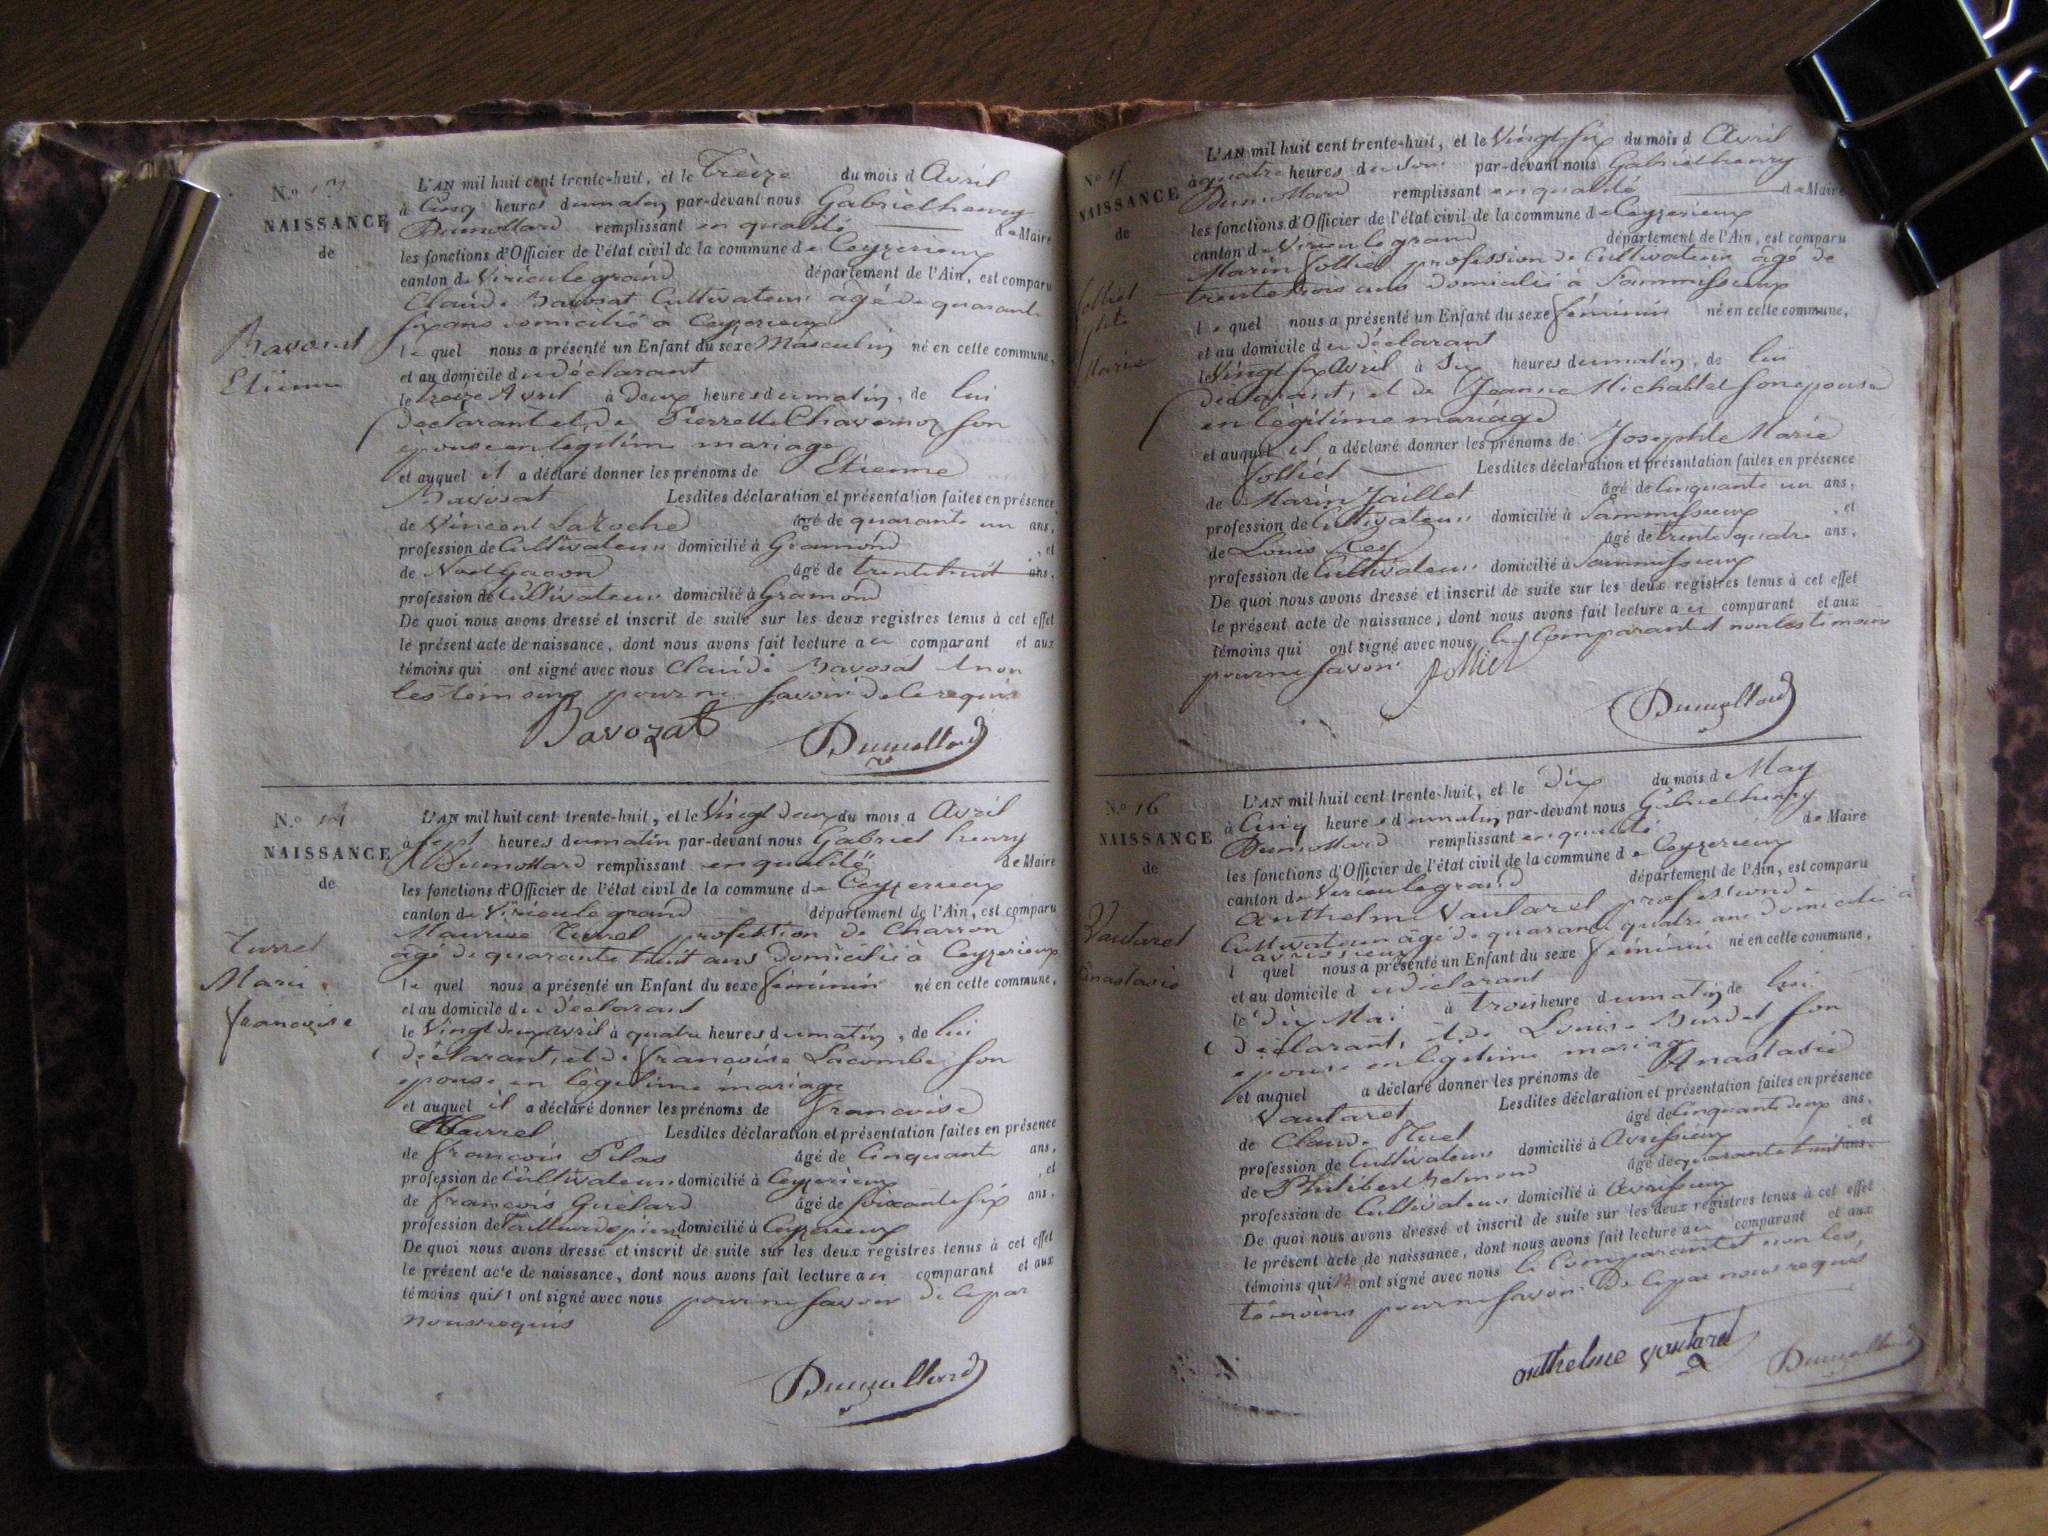 N.o 13
NAISSANCE
de
Bavosat
Etienne
L'AN mil huit cent trente-huit, et le Treize du mois d Avril
à Cinq heures dumatin par-devant nous Gabriel henry
Dumollard remplissant en qualité de Maire
les fonctions d'Officier de l'état civil de la commune de Ceyzerieux
canton de Virieu le grand département de l'Ain, est comparu
Claude Bavosat Cultivateur âgé de quarante
six ans domicilié à Ceyzerieux
le quel nous a présenté un Enfant du sexe Masculin né en cette commune,
et au domicile du déclarant
le treize Avril à deux heures dumatin, de lui
déclarant et de Pierrette Chavernoz son
épouse en légitime mariage
et auquel il a déclaré donner les prénoms de Etienne
Bavosat Lesdites déclaration et présentation faites en présence
de Vincent Laroche âgé de quarante un ans,
profession de Cultivateur domicilié à Gramond , et
de Noel Gacon âgé de trente huit ans,
profession de Cultivateur domicilié à Gramond
De quoi nous avons dressé et inscrit de suite sur les deux registres tenus à cet effet
le présent acte de naissance, dont nous avons fait lecture au comparant et aux
témoins qui ont signé avec nous Claude Bavosat & non
les témoins pour ne savoir de ce requis
Bavozat Dumollard
N.o 14
NAISSANCE
de
Turrel
Marie
françoise
L'AN mil huit cent trente-huit, et le Vingt deux du mois d Avril
à sept heures dumatin par-devant nous Gabriel henry
Dumollard remplissant en qualité de Maire
les fonctions d'Officier de l'état civil de la commune de Ceyzerieux
canton de Virieu le grand département de l'Ain, est comparu
Maurice Turrel profession de Charron
âgé de quarante huit ans domicilié à Ceyzerieux
le quel nous a présenté un Enfant du sexe féminin né en cette commune,
et au domicile du déclarant
le Vingt deux avril à quatre heures dumatin, de lui
déclarant, et de françoise Lacombe son
épouse en légitime mariage
et auquel il a déclaré donner les prénoms de françoise
Turrel Lesdites déclaration et présentation faites en présence
de françois Pilas âgé de Cinquante ans,
profession de Cultivateur domicilié à Ceyzerieux , et
de françois Guélard âgé de soixante six ans,
profession de Tailleur de pierre domicilié à Ceyzerieux
De quoi nous avons dressé et inscrit de suite sur les deux registres tenus à cet effet
le présent acte de naissance, dont nous avons fait lecture au comparant et aux
témoins qui n'ont signé avec nous pour ne savoir de ce par
nous requis
Dumollard
N.o 15
NAISSANCE
de
Jolliet
Marie
L'AN mil huit cent trente-huit, et le Vingt six du mois d Avril
à quatre heures du soir par-devant nous Gabriel henry
Dumollard remplissant en qualité de Maire
les fonctions d'Officier de l'état civil de la commune de Ceyzerieux
canton de Virieu le grand département de l'Ain, est comparu
Marin Jolliet profession de Cultivateur âgé de
trente trois ans domicilié à Sammissieux
le quel nous a présenté un Enfant du sexe féminin né en cette commune,
et au domicile du déclarant
le Vingt six Avril à Six heures dumatin, de lui
déclarant, et de Jeanne Michallet son épouse
en légitime mariage
et auquel il a déclaré donner les prénoms de Josephte Marie
Jolliet Lesdites déclaration et présentation faites en présence
de Marin Jaillet âgé de Cinquante un ans,
profession de Cultivateur domicilié à Sammissieux , et
de Louis Rey âgé de trente quatre ans,
profession de Cultivateur domicilié à Sammissieux
De quoi nous avons dressé et inscrit de suite sur les deux registres tenus à cet effet
le présent acte de naissance, dont nous avons fait lecture à comparant et aux
témoins qui ont signé avec nous le Comparant et non les témoins
pour ne savoir Jolliet
Dumollard
N.o 16
NAISSANCE
de
Vautaret
Anastasie
L'AN mil huit cent trente-huit, et le dix du mois de May
à Cinq heures dumatin par-devant nous Gabriel henry
Dumollard remplissant en qualité de Maire
les fonctions d'Officier de l'état civil de la commune de Ceyzerieux
canton de Virieu le grand département de l'Ain, est comparu
Anthelme Vautaret profession de
Cultivateur âgé de quarante quatre ans domicilié à
avrissieux
l quel nous a présenté un Enfant du sexe féminin né en cette commune,
et au domicile du déclarant
le dix Mai à trois heure dumatin de lui
déclarant, et de Louise Burdet son
epouse en légitime mariage
et auquel a déclaré donner les prénoms de Anastasie
Vautaret Lesdites déclaration et présentation faites en présence
de Claude Huet âgé de Cinquante deux ans,
profession de Cultivateur domicilié à Avrissieux et
de Philibert âgé de quarante huit ans.
profession de Cultivateur domicilié à avrissieux
De quoi nous avons dressé et inscrit de suite sur les deux registres tenus à cet effet
le présent acte de naissance, dont nous avons fait lecture au comparant et aux
témoins qui ont signé avec nous le Comparant et non les
témoins pour ne savoir De ce par nous requis
anthelme vautaret Dumollard